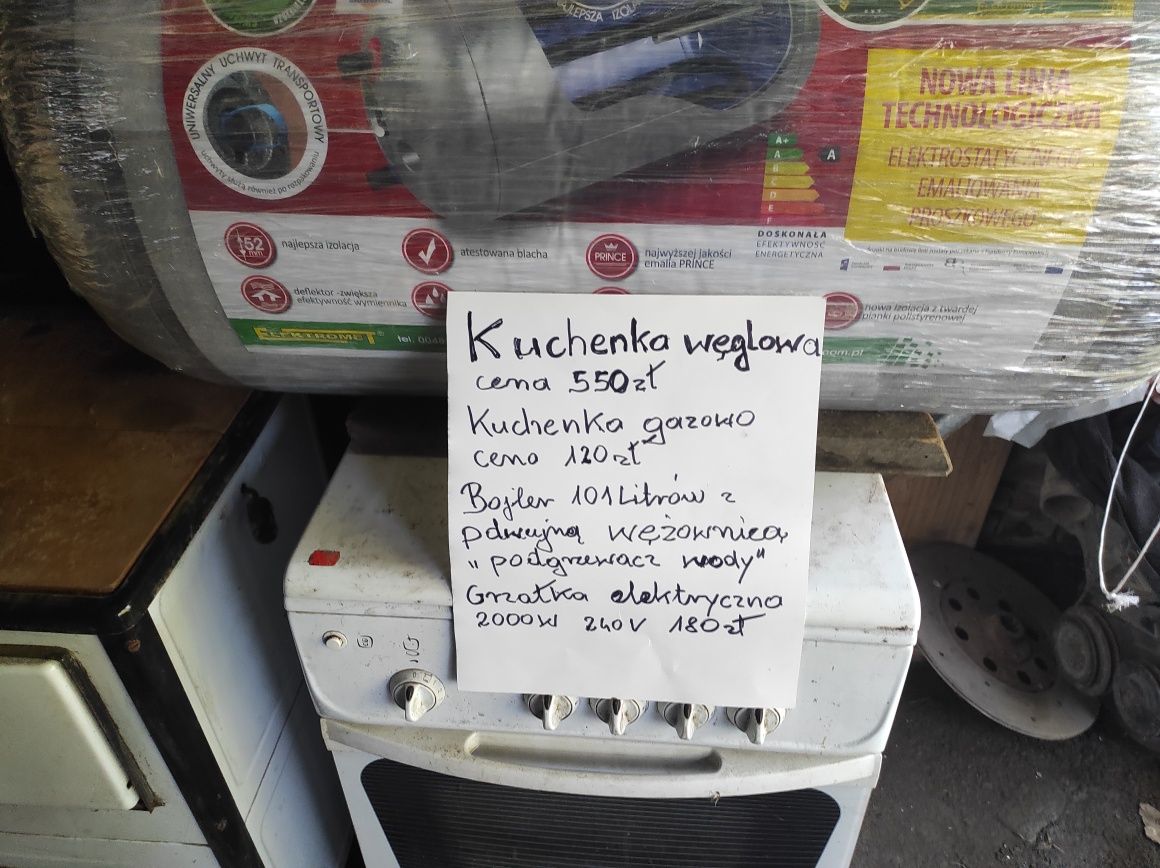 UNIWERSALNY UCHWYT TRANSPORTOWY
uchwyty służą również po rozpakowaniu
NOWA LINIA
TECHNOLOGICZNA
EMALIOWANIA
PROSZKOWEGO
A+
A
A
B
C
D
E
DOSKONAŁA
EFEKTYWNOŚĆ
ENERGETYCZNA
52
mm
najlepsza izolacja
atestowana blacha
PRINCE
najwyższej jakości
emalia PRINCE
deflektor -zwiększa
efektywność wymiennika
nowa izolacja z twardej
pianki polistyrenowej
ELEKTROMET
tel.
Kuchenka węglowa
cena 550zł
Kuchenka gazowo
ceno 120zł
Bojler 101Litrów z
pdwujną wężownicą
"podgrzewacz wody"
Grzałka elektryczna
2000W 240V 180zł